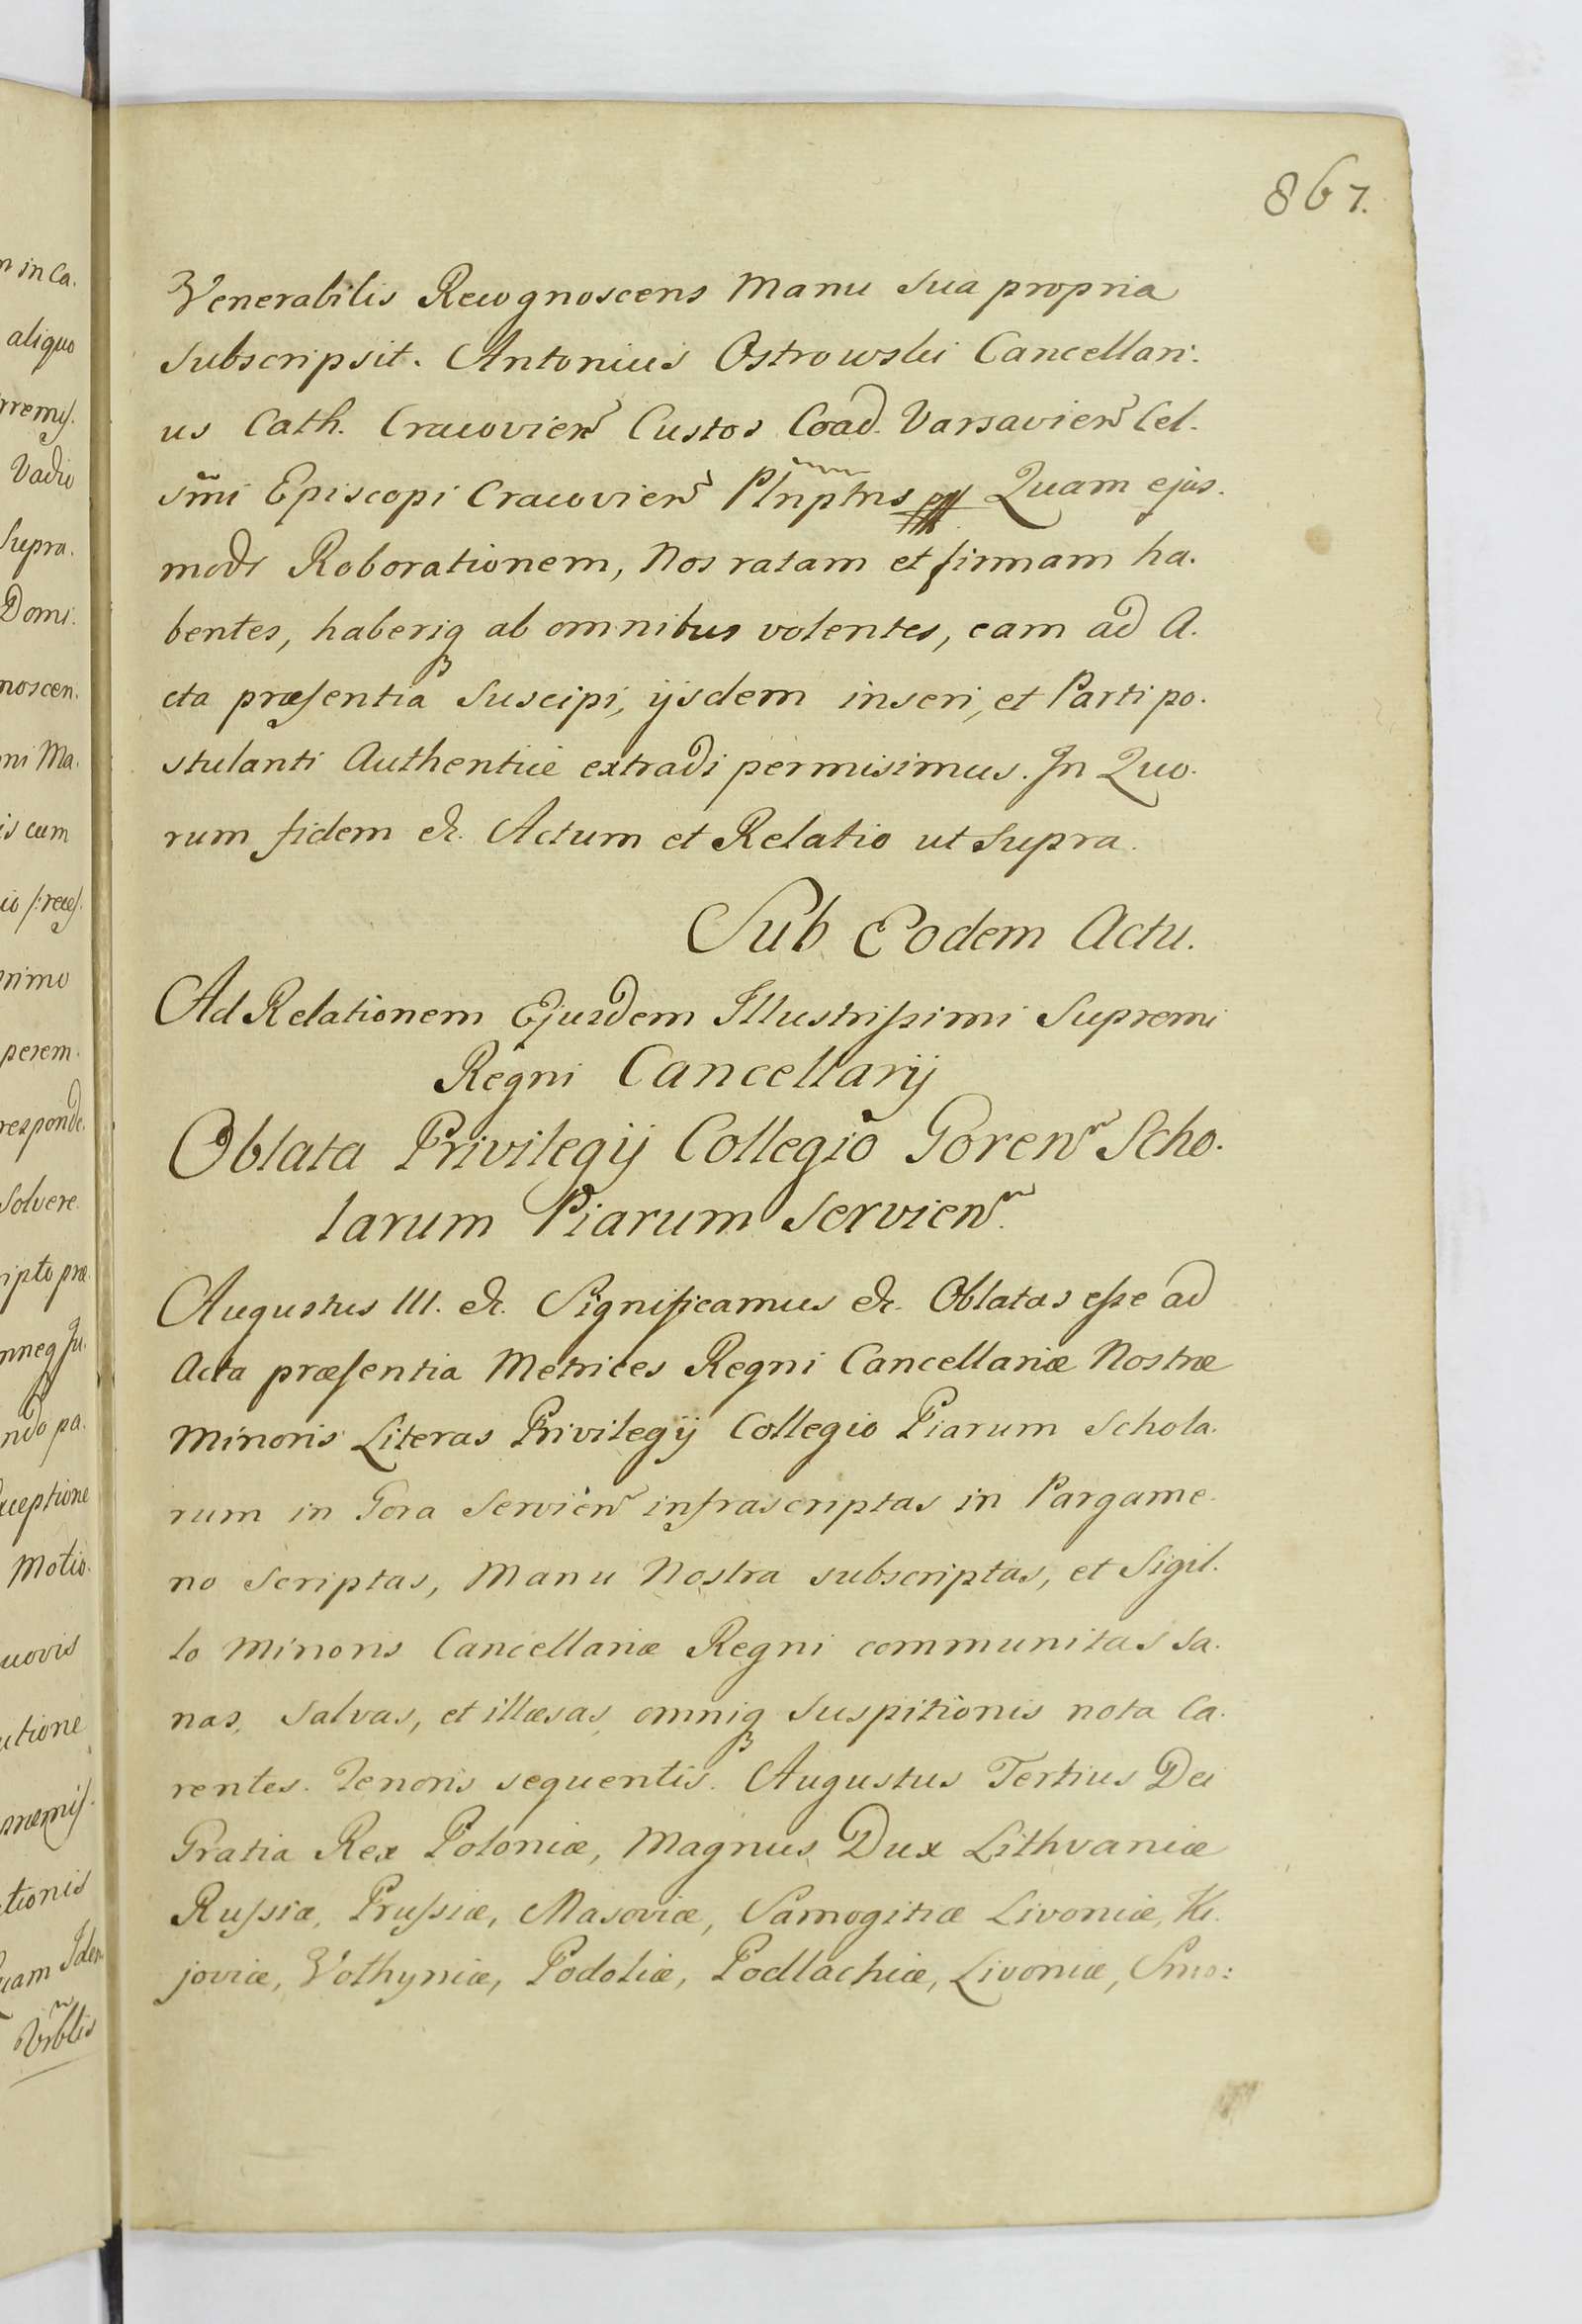 867.
Venerabilis Recognoscens Manu sua propria
subscripsit. Antonius Ostrowski Cancellari.
us Cath. Cracovien Custos Coad. Varsavien Cel.
smi Episcopi Cracovien Plnptns Quam ejus.
modi Roborationem, Nos ratam et firmam ha.
bentes, haberiq ab omnibus volentes, eam ad A.
cta præsentia suscipi, ijsdem inseri, et Parti po.
stulanti Authentice extradi permisimus. In Quo.
rum fidem &c. Actum et Relatio ut supra.
Sub Eodem Actu.
Ad Relationem Ejusdem Illustrissimi Supremi
Regni Cancellarij
Oblata Privilegij Collegio Goren Scho.
larum Piarum Servien.
Augustus III. &c. Significamus &c. Oblatas esse ad
Acta præsentia Metrices Regni Cancellariæ Nostræ
Minoris Literas Privilegij Collegio Piarum Schola.
rum in Gora Servien infrascriptas in Pargame.
no Scriptas, Manu Nostra subscriptas, et Sigil.
lo Minoris Cancellariæ Regni communitas sa.
nas, salvas, et illæsas, omniq suspitionis nota Ca.
rentes. Tenoris sequentis. Augustus Tertius Dei
Gratia Rex Poloniæ, Magnus Dux Lithvaniæ
Russiæ, Prussiæ, Masoviæ, Samogitiæ Livoniæ, Ki.
joviæ, Volhyniæ, Podoliæ, Podlachiæ, Livoniæ, Smo:
n in Ca.
aliquo
Vadio
Supra.
Domi.
noscen.
ni Ma.
is cum
rimo
perem.
responde.
Solvere
ipto præ.
ndo pa.
ceptione
Motio.
uovis
utione
tionis
uam Idem
Vrblis